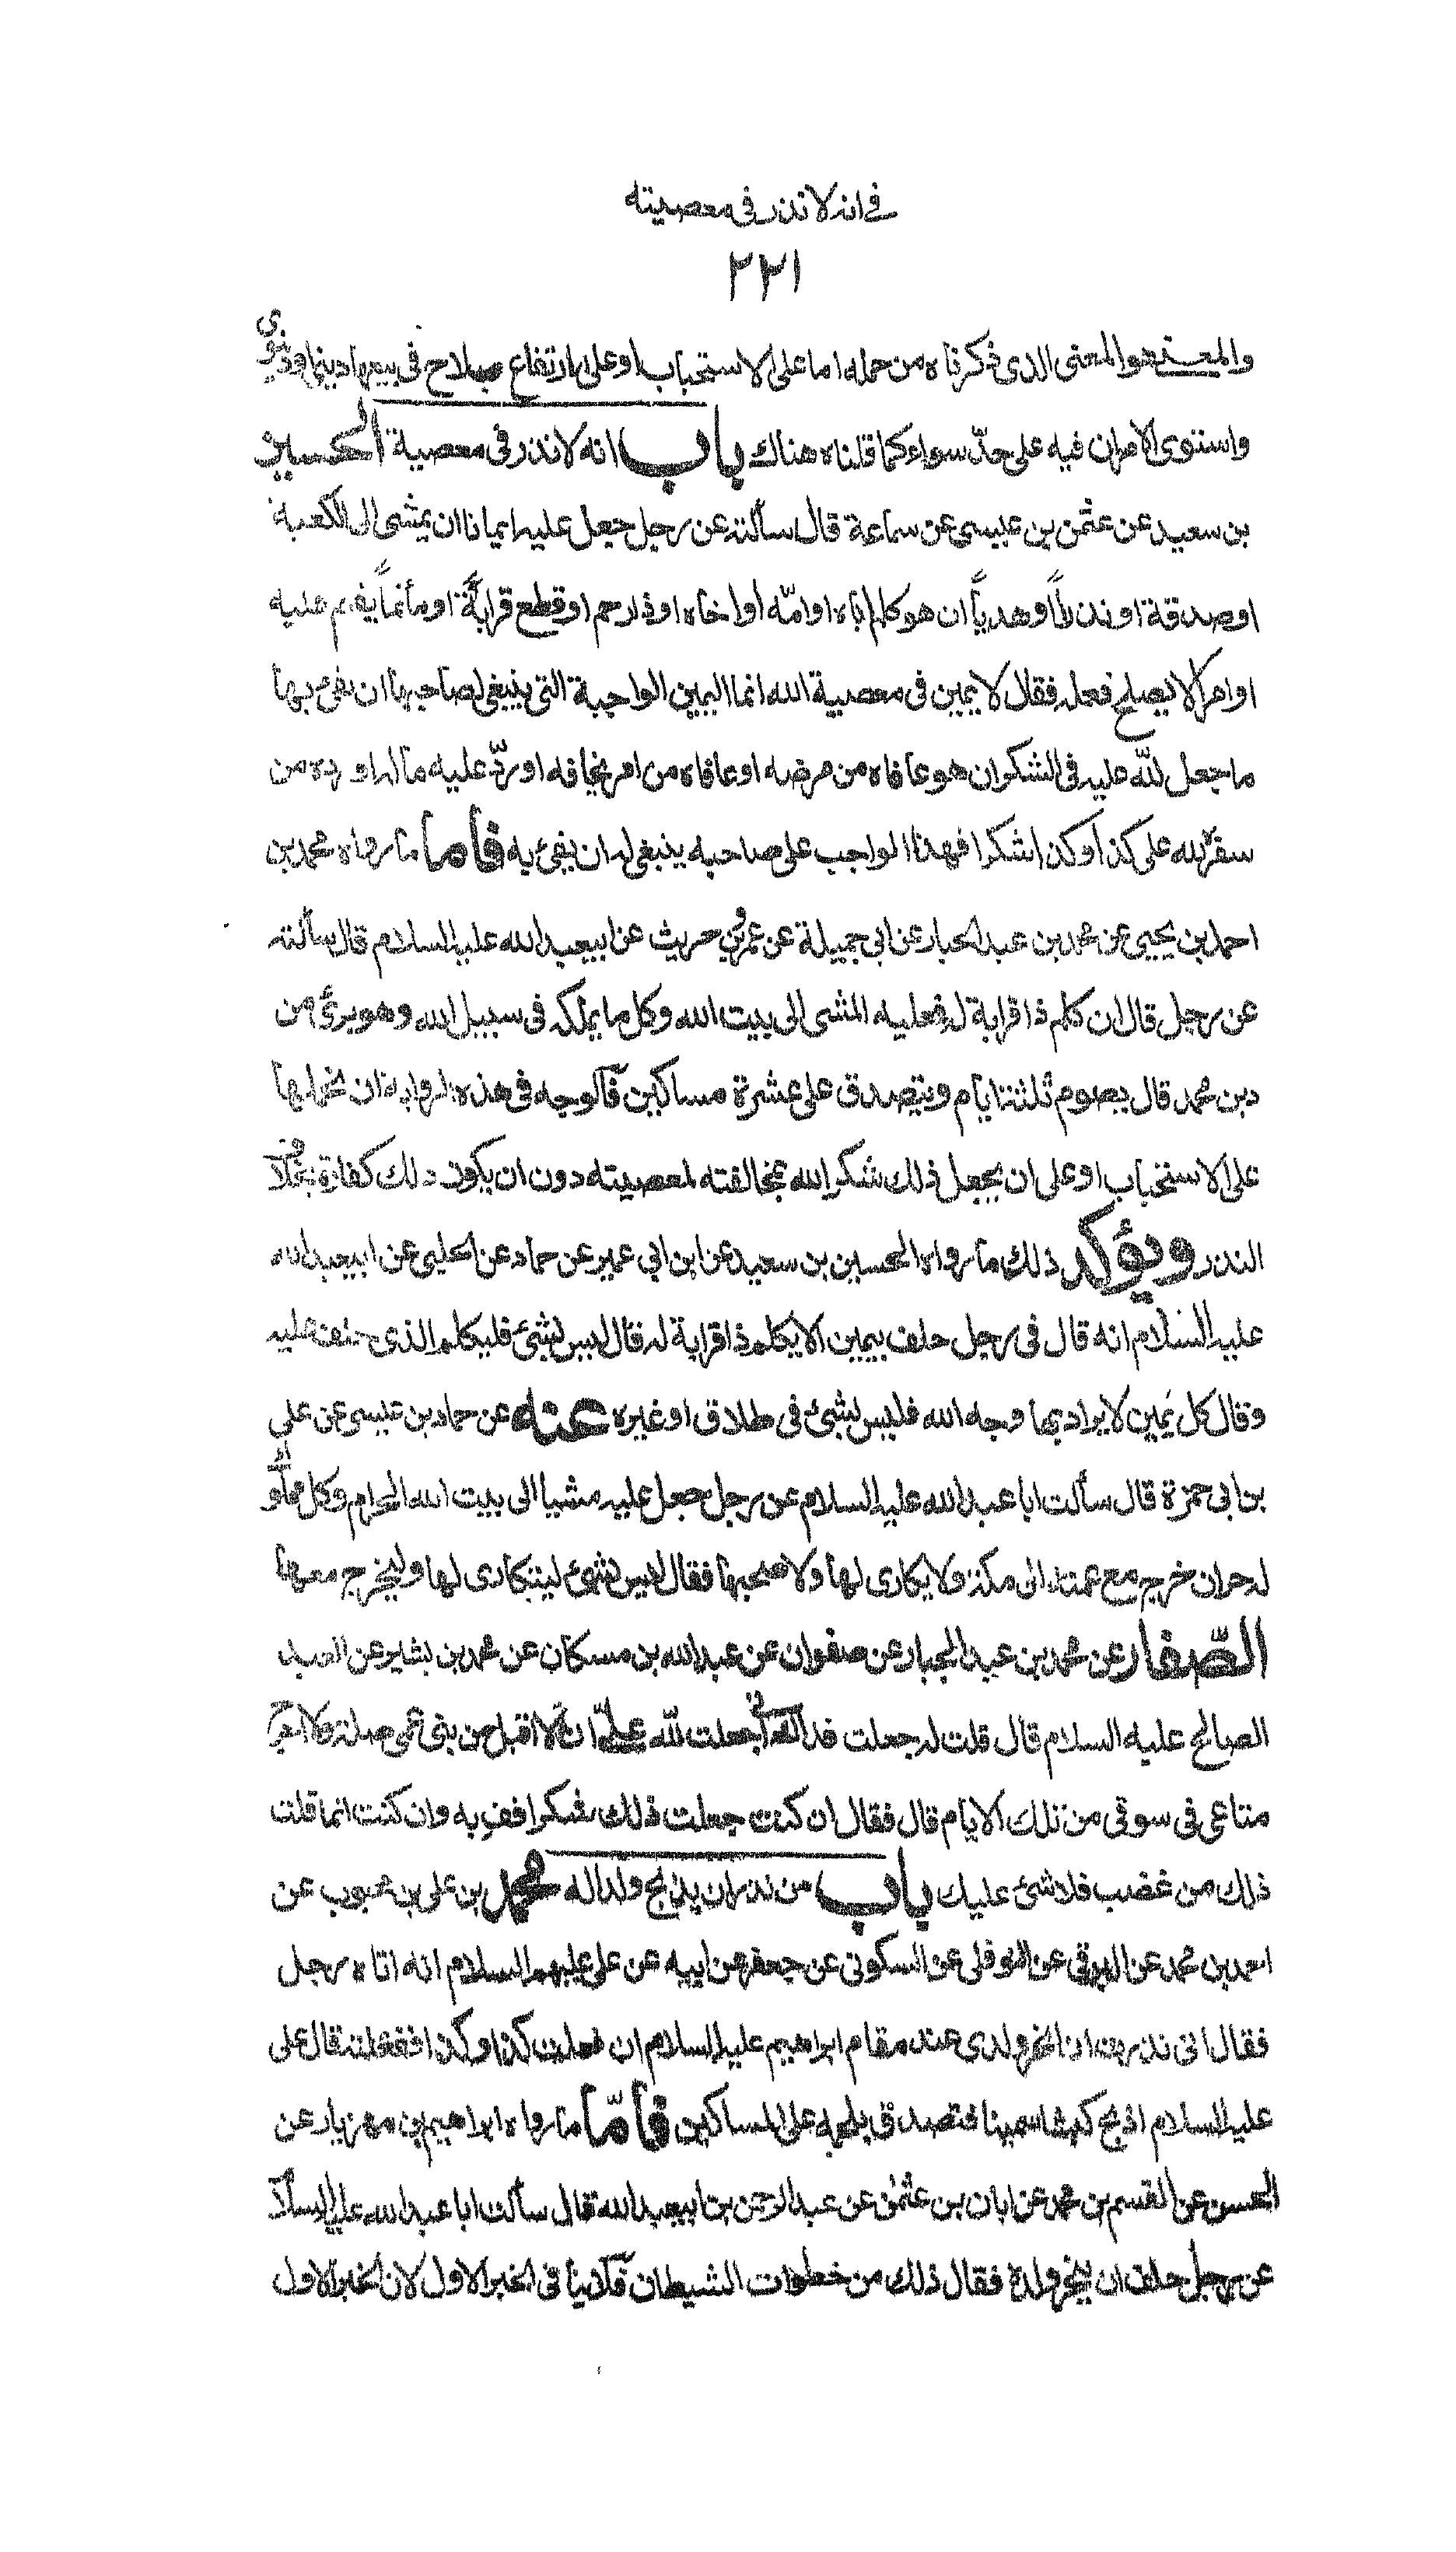 في انه لا نذر فى معصيته
٢٢١
والمعنى هو المعنى الذى ذكرناه من حمله اما على الاستحباب او على ارتفاع صلاح فى بيعها دينا ودنيوى
واستوى الامران فيه على حدّ سواء كما قلناه هناك باب انه لا نذر فى معصية الحسين
بن سعيد عن عثمن بن عيسى عن سماعة قال سألته عن رجل جعل عليه ايمانا ان يمشى الى الكعبة
او صدقة او نذرا او هدياً ان هو كلم اباه او امّه او اخاه او ذا رحم او قطع قرابة او مأثماً يقيم عليه
او امرا لا يصلح فعله فقال لا يمين فى معصية الله انما اليمين الواجبة التى ينبغى لصاحبها ان يفى بها
ما جعل لله عليه فى الشكر ان هو عافاه من مرضه او عافاه من امر يخافه او ردّ عليه ماله او رده من
سفر لله على كذا وكذا شكرا فهذا الواجب على صاحبه ينبغى له ان يفئ به فأما ما رواه محمد بن
احمد بن يحيى عن محمد بن عبد الجبار عن ابى جميلة عن عمرو بن حريث عن ابيعبد الله عليه السلام قال سألته
عن رجل قال ان كلم ذا قرابة له فعليه المشى الى بيت الله وكل ما يملكه فى سبيل الله وهو برئ من
دين محمد قال يصوم ثلثة ايام ويتصدق على عشرة مساكين فالوجه فى هذه الرواية ان نحملها
على الاستحباب او على ان يجعل ذلك شكرا لله بمخالفته لمعصيته دون ان يكون ذلك كفارة لخلاف
النذر ويؤكد ذلك ما رواه الحسين بن سعيد عن ابن ابى عمير عن حماد عن الحلبى عن ابيعبد الله
عليه السلام انه قال فى رجل حلف بيمين الا يكلم ذا قرابة له قال ليس بشئ فليكلم الذى حلف عليه
وقال كل يمين لا يراد بها وجه الله فليس بشئ فى طلاق او غيره عنه عن حماد بن عيسى عن على
بن ابى حمزة قال سألت ابا عبد الله عليه السلام عن رجل جعل عليه مشيا الى بيت الله الحرام وكل مملوك
له حر ان خرج مع عمته الى مكة ولا يكارى لها ولا صحبها فقال ليس بشئ ليتكارى لها وليخرج معها
الصّفار عن محمد بن عبد الجبار عن صفوان عن عبد الله بن مسكان عن محمد بن بشير عن العبد
الصالح عليه السلام قال قلت له جعلت فداك انى جعلت لله علىّ ان لا اقبل من بنى عمى صلة ولا اخرج
متاعى فى سوقى من تلك الايام قال فقال ان كنت جعلت ذلك شكرا ففِ به وان كنت انما قلت
ذلك من غضب فلا شئ عليك باب من نذر ان يذبح ولدا له محمد بن على بن محبوب عن
احمد بن محمد عن البرقى عن النوفلى عن السكونى عن جعفر عن ابيه عن على عليهم السلام انه اتاه رجل
فقال انى نذرت ان انحر ولدى عند مقام ابراهيم عليه السلام ان فعلت كذا وكذا ففعلته قال على
عليه السلام اذبح كبشا سمينا فتصدق بلحمه على المساكين فأمّا ما رواه ابراهيم بن مهزيار عن
الحسن عن القسم بن محمد عن ابان بن عثمن عن عبد الرحمن بن ابيعبد الله قال سألت ابا عبد الله عليه السلام
عن رجل حلف ان ينحر ولده فقال ذلك من خطوات الشيطان فلا ينافى الخبر الاول لان الخبر الاول